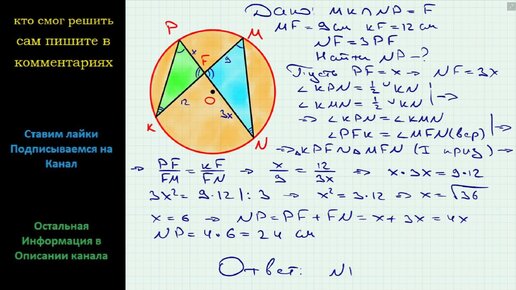 кто смог решить
сам пишите в
комментариях
Ставим лайки
Подписываемся на
Канал
Остальная
Информация в
Описании канала
P
M
x
F
9
O
12
3x
K
N
Дано: MK∩NP = F
MF = 9 см KF = 12 см
NF = 3PF
Найти NP - ?
Пусть PF = x → NF = 3x
∠KPN = ½ ◡KN
∠KMN = ½ ◡KN | →
→ ∠KPN = ∠KMN
∠PFK = ∠MFN (вер) | →
→ △KPF ∾ △MFN (I призн) →
→ PF/FM = KF/FN → x/9 = 12/3x → x·3x = 9·12
3x² = 9·12 |:3 → x² = 3·12 → x = √36
x = 6 → NP = PF + FN = x + 3x = 4x
NP = 4·6 = 24 см
Ответ: NP